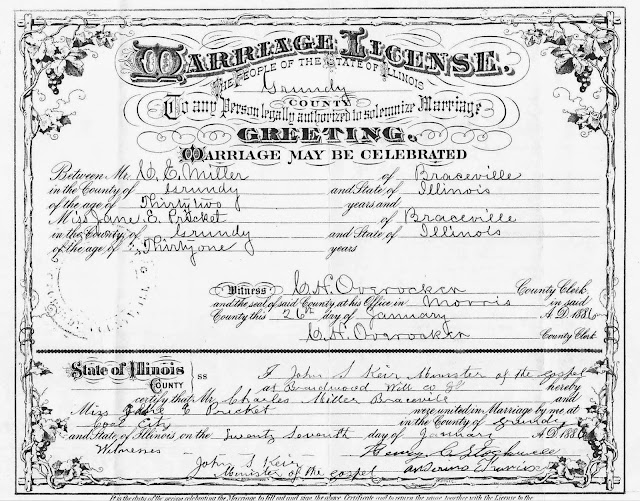 MARRIAGE LICENSE.
THE PEOPLE OF THE STATE OF ILLINOIS
Grundy
COUNTY
To any Person legally authorized to solemnize Marriage
GREETING.
MARRIAGE MAY BE CELEBRATED
Between Mr. C. E. Miller of Braceville
in the County of Grundy and State of Illinois
of the age of Thirty two years and
Miss Jane E. Pricket of Braceville
in the County of Grundy and State of Illinois
of the age of Thirty one years
Witness C. H. Overocker County Clerk
and the seal of said County at his Office in Morris in said
County this 26th day of January A.D. 1886
C. H. Overocker County Clerk
State of Illinois
COUNTY
ss
I John S Keir Minister of the gospel
at Braidwood Will co Ill hereby
certify that Mr. Charles Miller Braceville and
Miss Jane E Pricket were united in Marriage by me at
Coal City in the County of Grundy
and State of Illinois, on the Twenty Seventh day of January A.D. 1886
Witnesses -
Henry
John S Keir
Minister of the gospel
It is the duty of the person celebrating the Marriage to fill and sign the above Certificate and to return the same together with the License to the